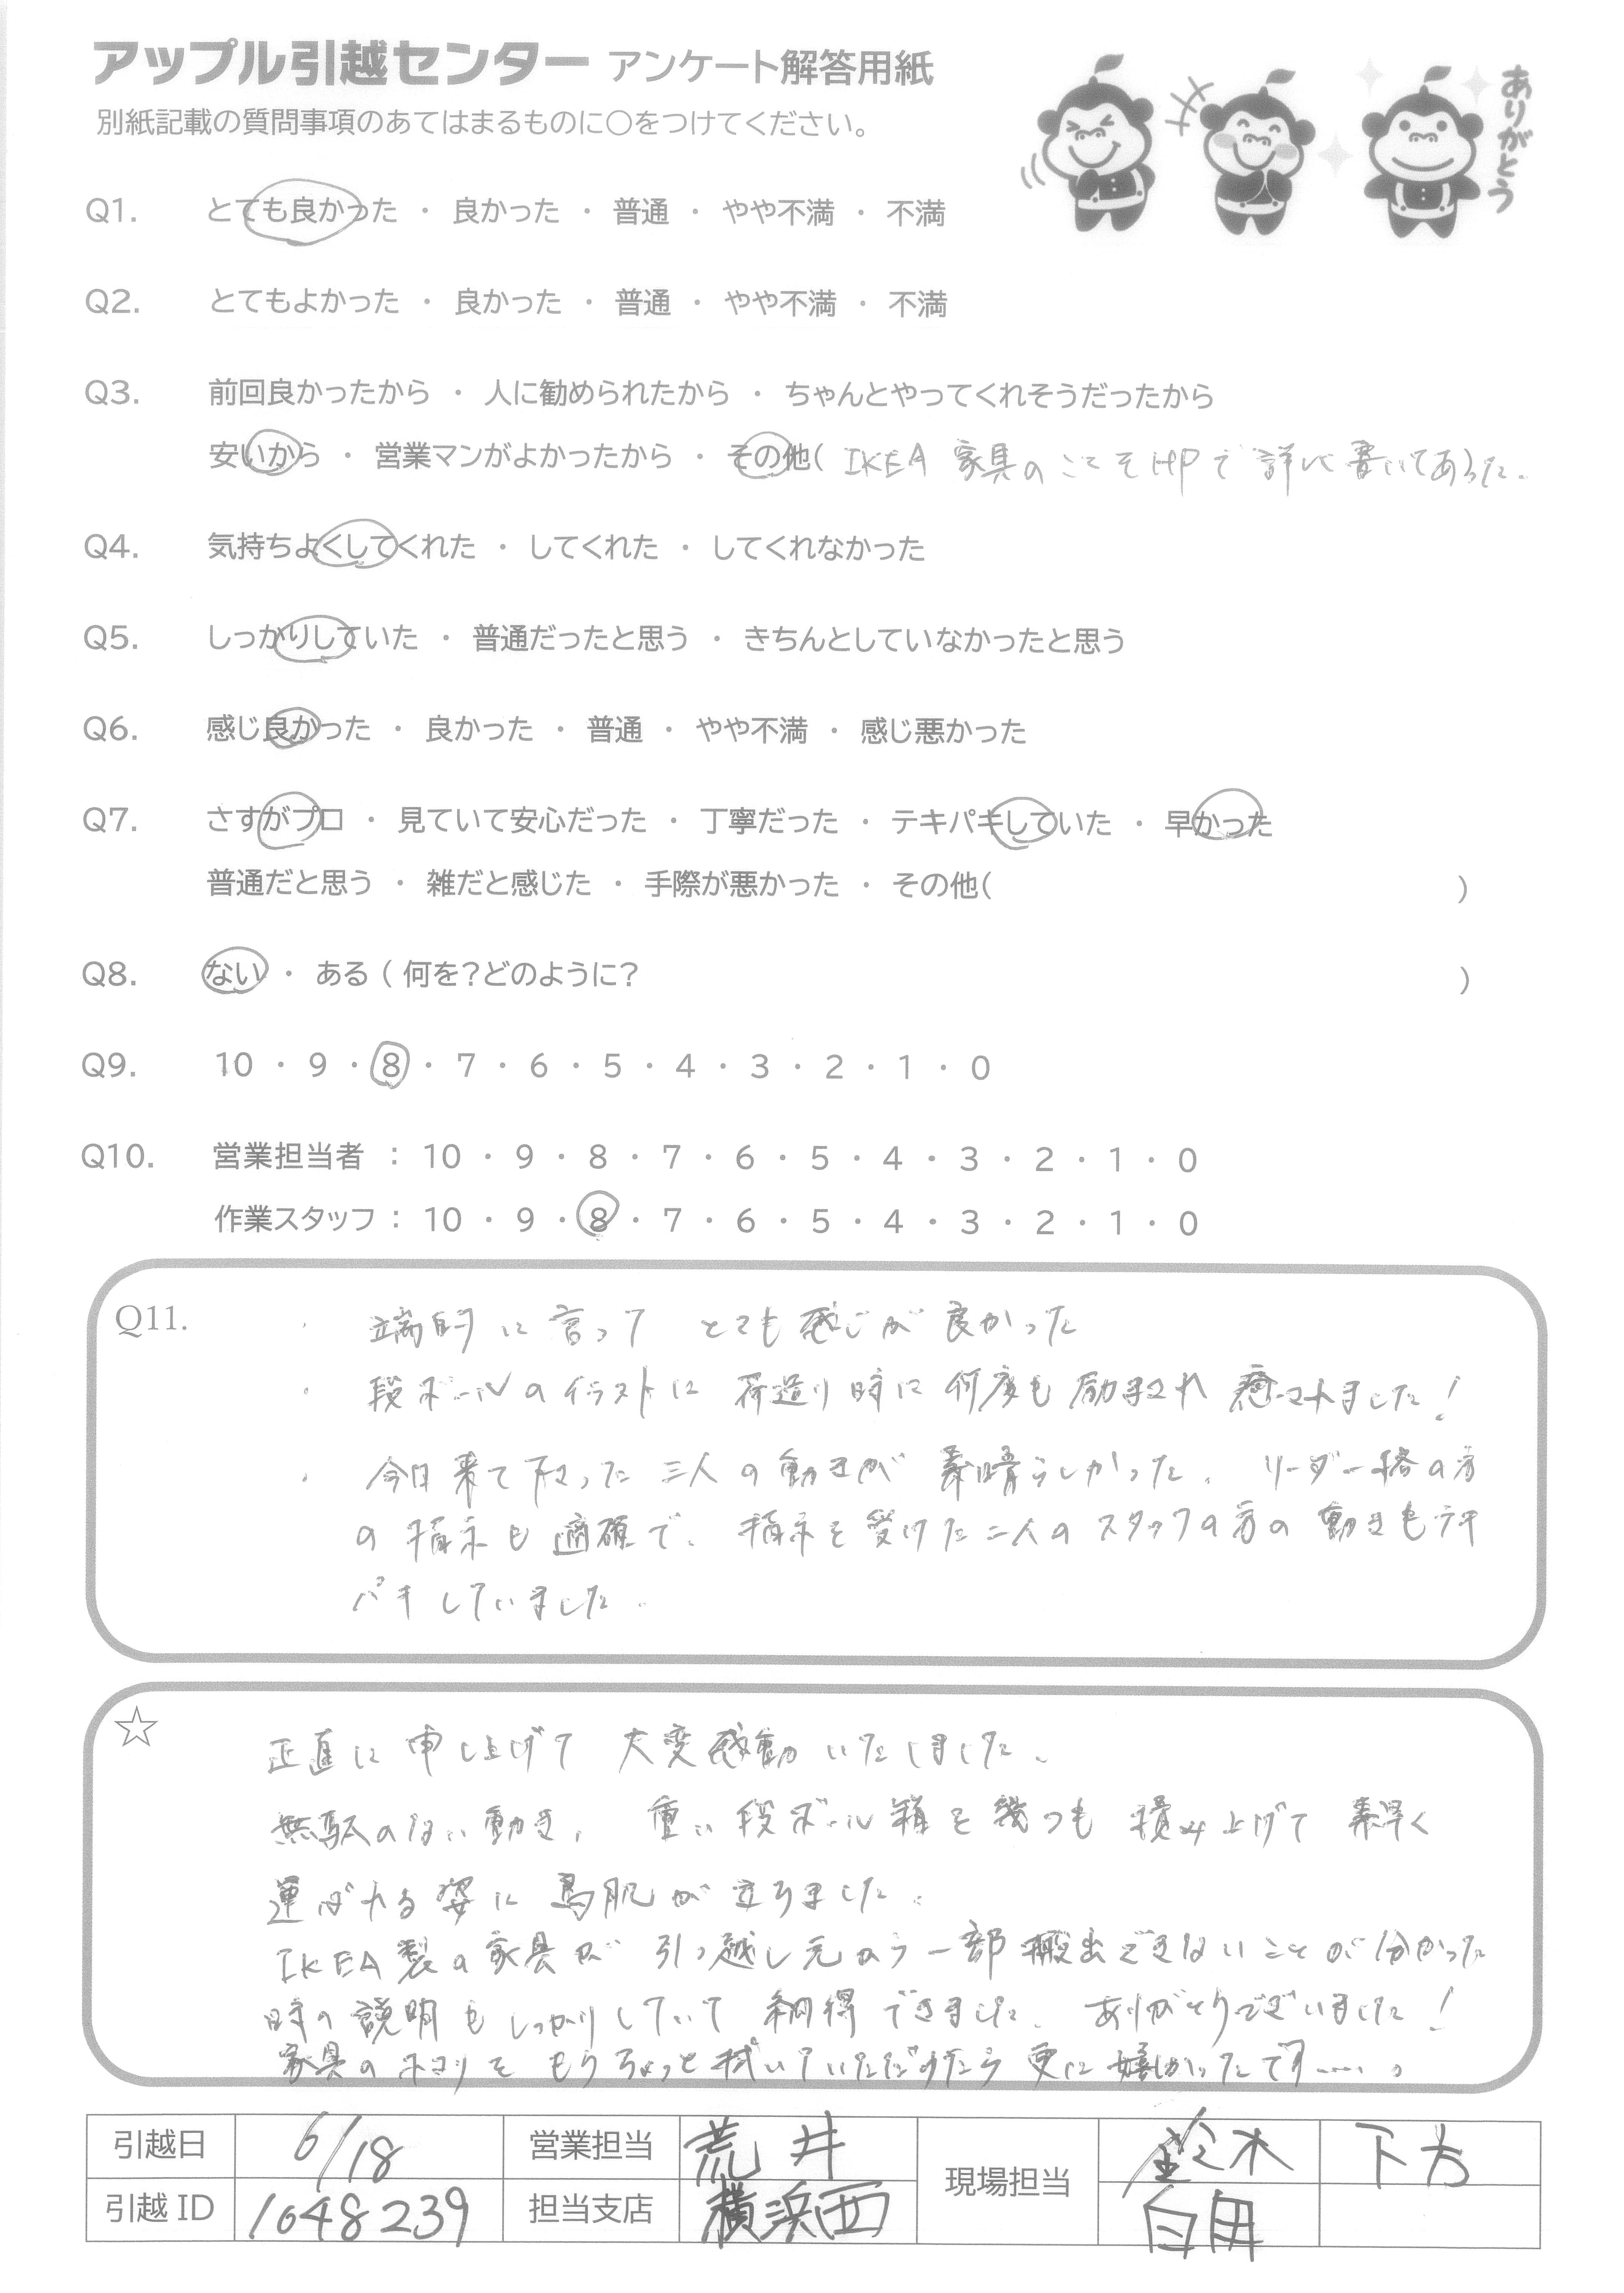 アップル引越センター アンケート解答用紙
別紙記載の質問事項のあてはまるものに○をつけてください。
ありがとう
Q1. とても良かった ・ 良かった ・ 普通 ・ やや不満 ・ 不満
Q2. とてもよかった ・ 良かった ・ 普通 ・ やや不満 ・ 不満
Q3. 前回良かったから ・ 人に勧められたから ・ ちゃんとやってくれそうだったから
安いから ・ 営業マンがよかったから ・ その他( IKEA 家具のことをHPで詳しく書いてあった。
Q4. 気持ちよくしてくれた ・ してくれた ・ してくれなかった
Q5. しっかりしていた ・ 普通だったと思う ・ きちんとしていなかったと思う
Q6. 感じ良かった ・ 良かった ・ 普通 ・ やや不満 ・ 感じ悪かった
Q7. さすがプロ ・ 見ていて安心だった ・ 丁寧だった ・ テキパキしていた ・ 早かった
普通だと思う ・ 雑だと感じた ・ 手際が悪かった ・ その他( )
Q8. ない ・ ある ( 何を?どのように? )
Q9. 10 ・ 9 ・ 8 ・ 7 ・ 6 ・ 5 ・ 4 ・ 3 ・ 2 ・ 1 ・ 0
Q10. 営業担当者 : 10 ・ 9 ・ 8 ・ 7 ・ 6 ・ 5 ・ 4 ・ 3 ・ 2 ・ 1 ・ 0
作業スタッフ : 10 ・ 9 ・ 8 ・ 7 ・ 6 ・ 5 ・ 4 ・ 3 ・ 2 ・ 1 ・ 0
Q11. ・ 端的に言って とても感じが良かった
・ 段ボールのイラストに荷造り時に何度も励まされ癒やされました!
・ 今日来て下さった三人の動きが素晴らしかった。リーダー格の方
の指示も適確で、指示を受けた二人のスタッフの方の動きもテキ
パキしていました。
☆ 正直に申し上げて大変感動いたしました。
無駄のない動き、重い段ボール箱を幾つも積み上げて素早く
運ばれる姿に鳥肌が立ちました。
IKEA製の家具が引っ越し元から一部搬出できないことが分かった
時の説明もしっかりしていて納得できました。ありがとうございました!
家具のホコリをもうちょっと拭いていただけたら更に嬉しかったです……。
引越日 6/18 営業担当 荒井 現場担当 鈴木 下方
引越 ID 1048239 担当支店 横浜西 臼田